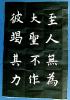 至人無為
大聖不作
彼竭其力